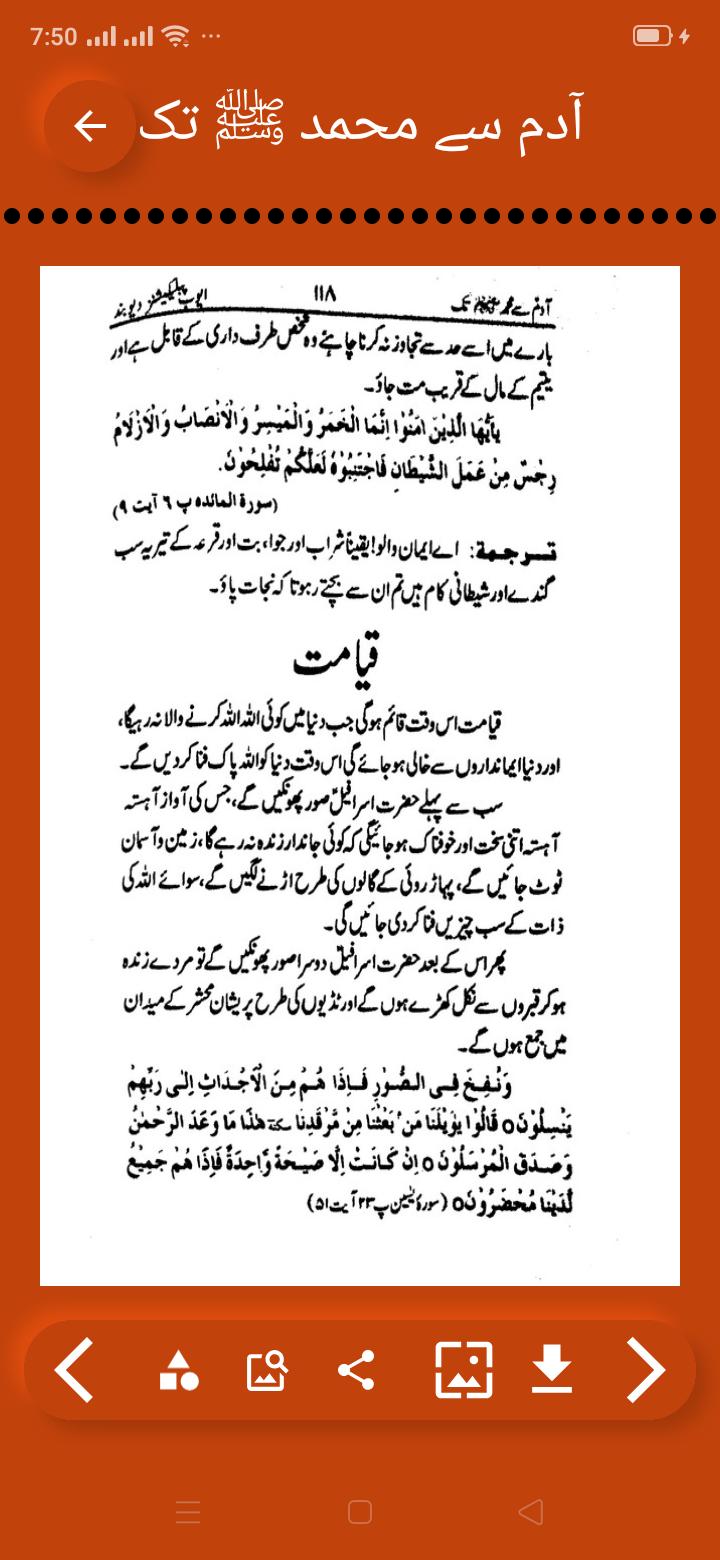 7:50
آدم سے محمد ﷺ تک
آدمؑ سے محمد ﷺ تک ۱۱۸ ایوب پبلیکیشنز دیوبند
بارے میں اسے حد سے تجاوز نہ کرنا چاہئے وہ شخص طرف داری کے قابل ہے اور
یتیم کے مال کے قریب مت جاؤ۔
یٰاَیُّهَا الَّذِیْنَ اٰمَنُوْا اِنَّمَا الْخَمْرُ وَالْمَیْسِرُ وَالْاَنْصَابُ وَالْاَزْلَامُ
رِجْسٌ مِنْ عَمَلِ الشَّیْطَانِ فَاجْتَنِبُوْهُ لَعَلَّکُمْ تُفْلِحُوْنَ.
(سورۃ المائدہ پ ۶ آیت ۹)
ترجمة: اے ایمان والو! یقیناً شراب اور جوا، بت اور قرعہ کے تیر یہ سب
گندے اور شیطانی کام ہیں تم ان سے بچتے رہو تا کہ نجات پاؤ۔
قیامت
قیامت اس وقت قائم ہوگی جب دنیا میں کوئی اللہ اللہ کرنے والا نہ رہیگا،
اور دنیا ایمانداروں سے خالی ہو جائے گی اس وقت دنیا کو اللہ پاک فنا کردیں گے۔
سب سے پہلے حضرت اسرافیلؑ صور پھونکیں گے، جس کی آواز آہستہ
آہستہ اتنی سخت اور خوفناک ہو جائیگی کہ کوئی جاندار زندہ نہ رہے گا، زمین و آسمان
ٹوٹ جائیں گے، پہاڑ روئی کے گالوں کی طرح اڑنے لگیں گے، سوائے اللہ کی
ذات کے سب چیزیں فنا کر دی جائیں گی۔
پھر اس کے بعد حضرت اسرافیلؑ دوسرا صور پھونکیں گے تو مردے زندہ
ہو کر قبروں سے نکل کھڑے ہوں گے اور ٹڈیوں کی طرح پریشان محشر کے میدان
میں جمع ہوں گے۔
وَنُفِخَ فِی الصُّوْرِ فَاِذَا هُمْ مِنَ الْاَجْدَاثِ اِلٰی رَبِّهِمْ
یَنْسِلُوْنَ○ قَالُوْا یٰوَیْلَنَا مَنْ بَعَثَنَا مِنْ مَّرْقَدِنَا سکتہ هٰذَا مَا وَعَدَ الرَّحْمٰنُ
وَصَدَقَ الْمُرْسَلُوْنَ○ اِنْ کَانَتْ اِلَّا صَیْحَةً وَّاحِدَةً فَاِذَا هُمْ جَمِیْعٌ
لَّدَیْنَا مُحْضَرُوْنَ○ (سورۂ یٰسین پ ۲۳ آیت ۵۱)